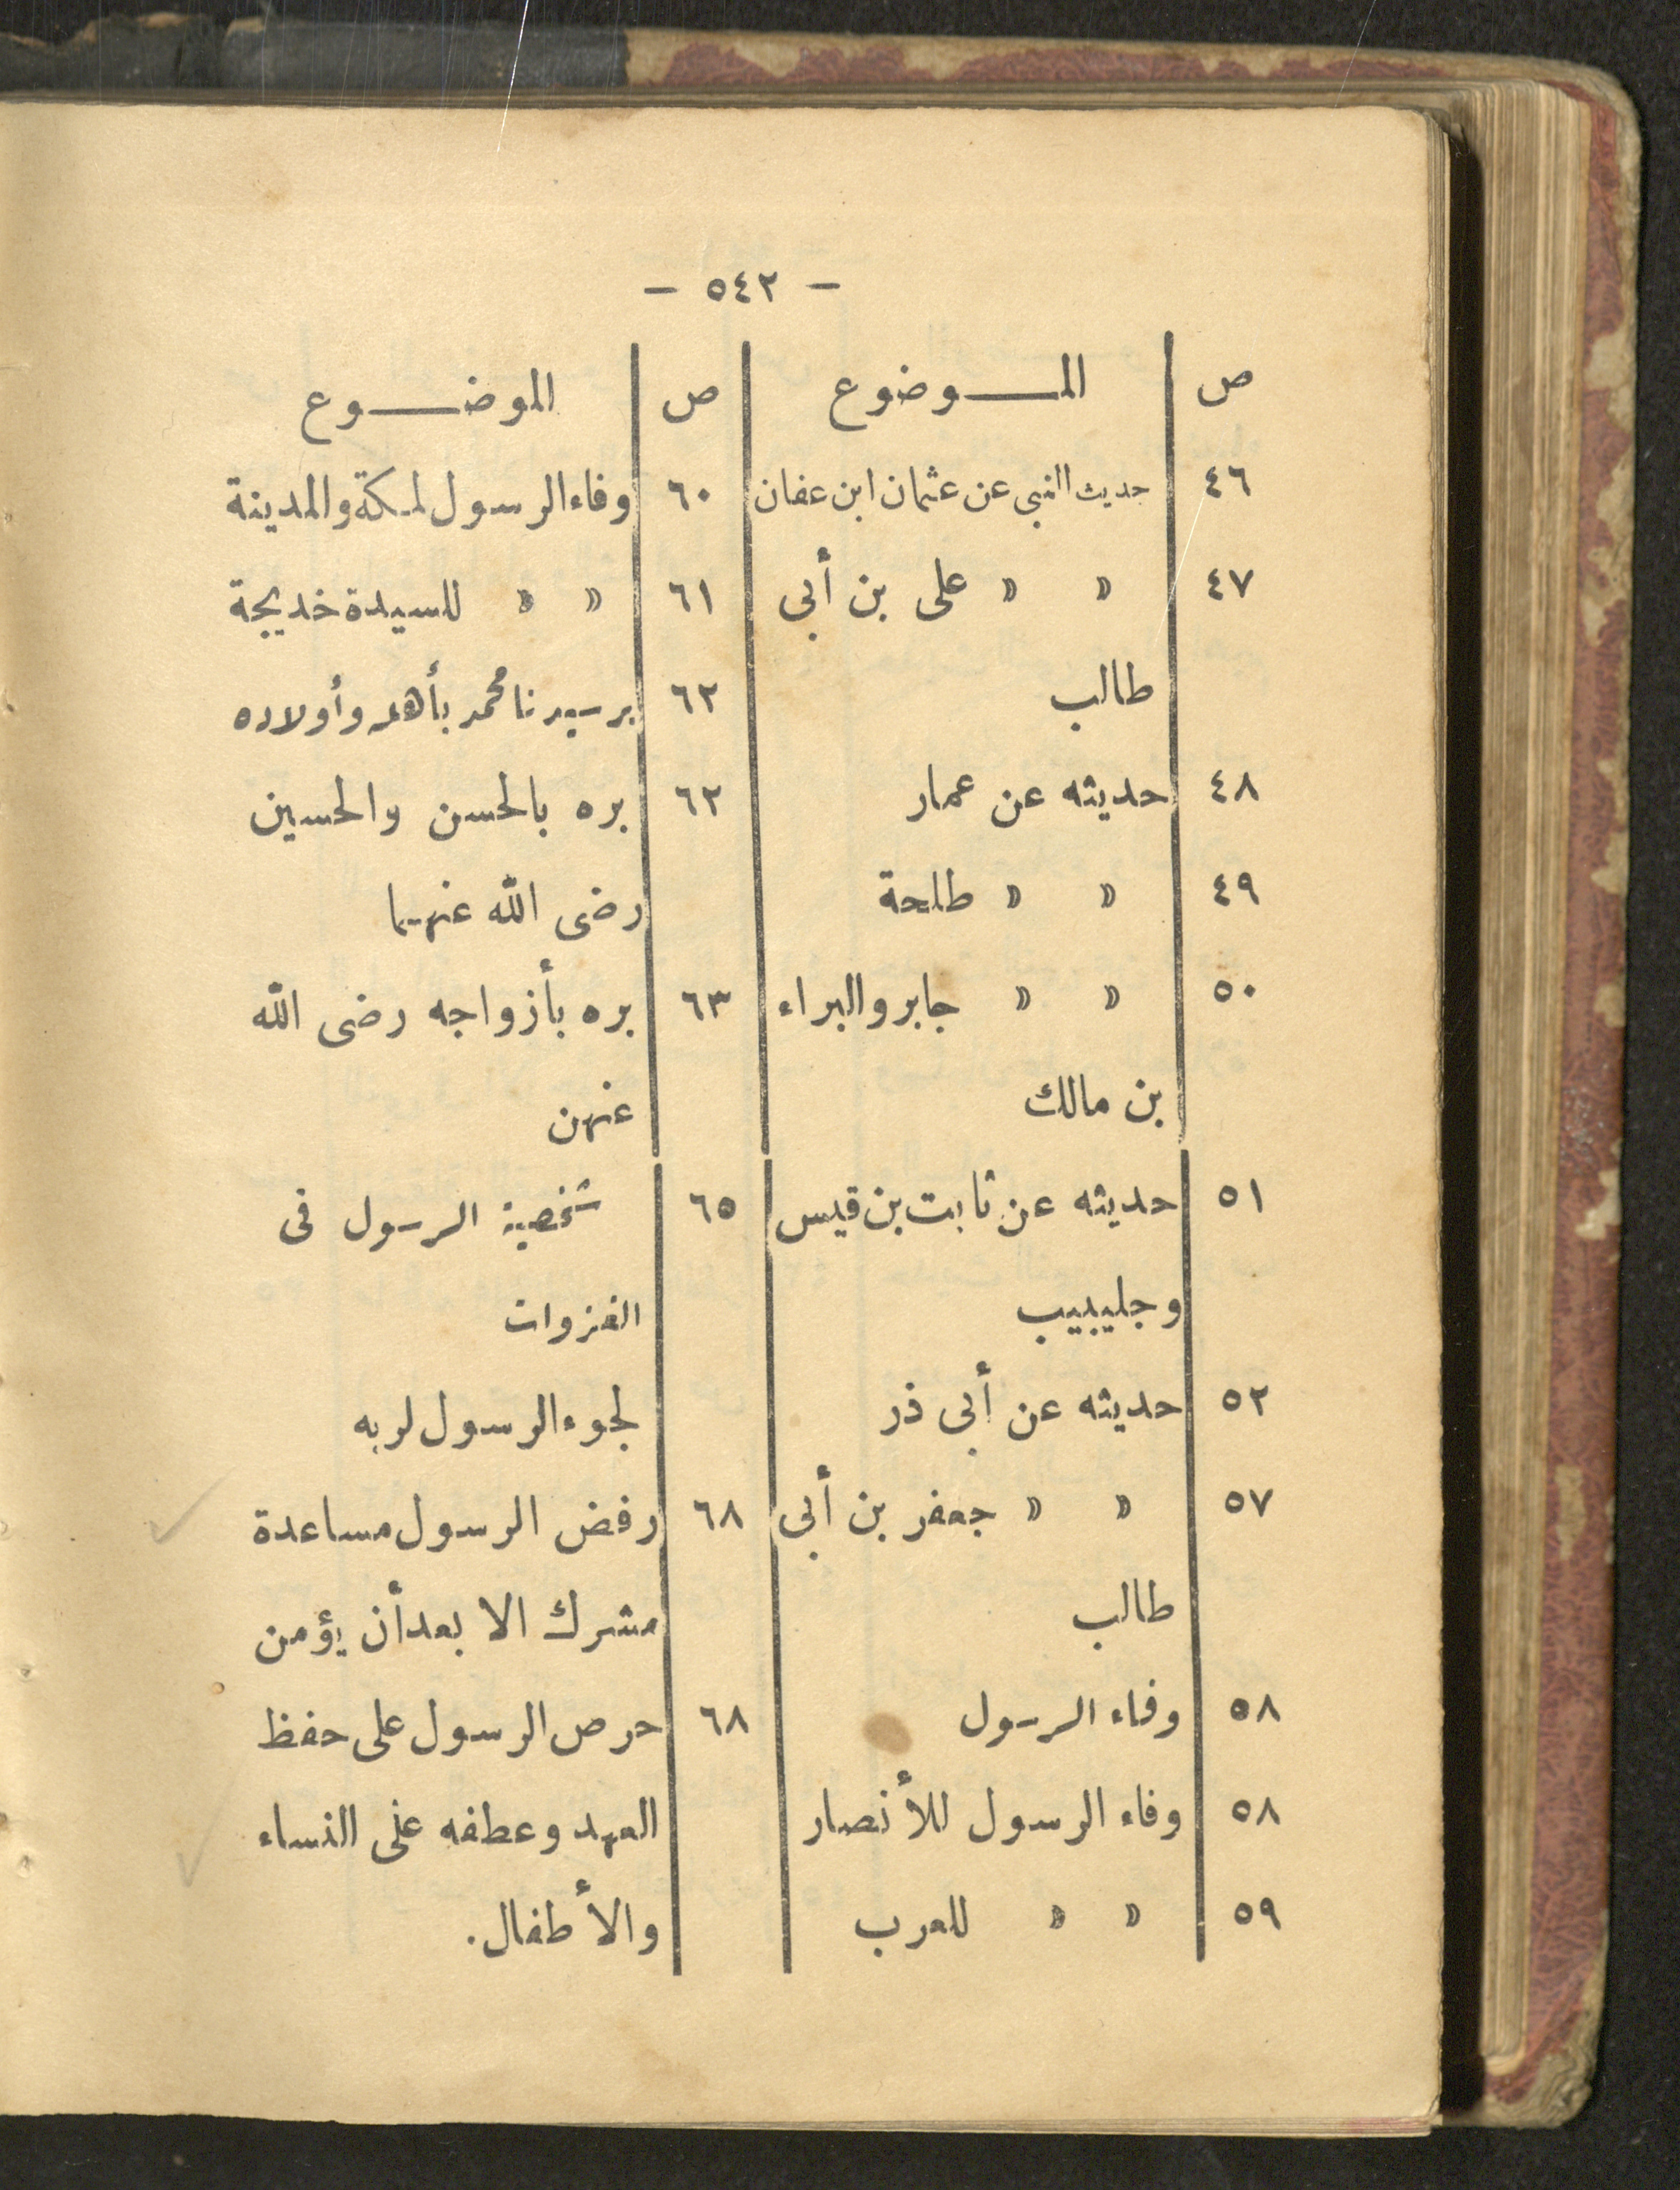 — ٥٤٢ —
ص الموضوع
٤٦ حديث النبى عن عثمان ابن عفان
٤٧ » » على بن أبى
طالب
٤٨ حديثه عن عمار
٤٩ » » طلحة
٥٠ » » جابر والبراء
بن مالك
٥١ حديثه عن ثابت بن قيس
وجليبيب
٥٢ حديثه عن أبى ذر
٥٧ » » جعفر بن أبى
طالب
٥٨ وفاء الرسول
٥٨ وفاء الرسول للأنصار
٥٩ » » للعرب
ص الموضوع
٦٠ وفاء الرسول لمكة والمدينة
٦١ » » للسيدة خديجة
٦٢ بر سيدنا محمد بأهله وأولاده
٦٢ بره بالحسن والحسين
رضى الله عنهما
٦٣ بره بأزواجه رضى الله
عنهن
٦٥ شخصية الرسول فى
الغزوات
لجوء الرسول لربه
٦٨ رفض الرسول مساعدة
مشرك الا بعد أن يؤمن
٦٨ حرص الرسول على حفظ
العهد وعطفه على النساء
والأطفال.